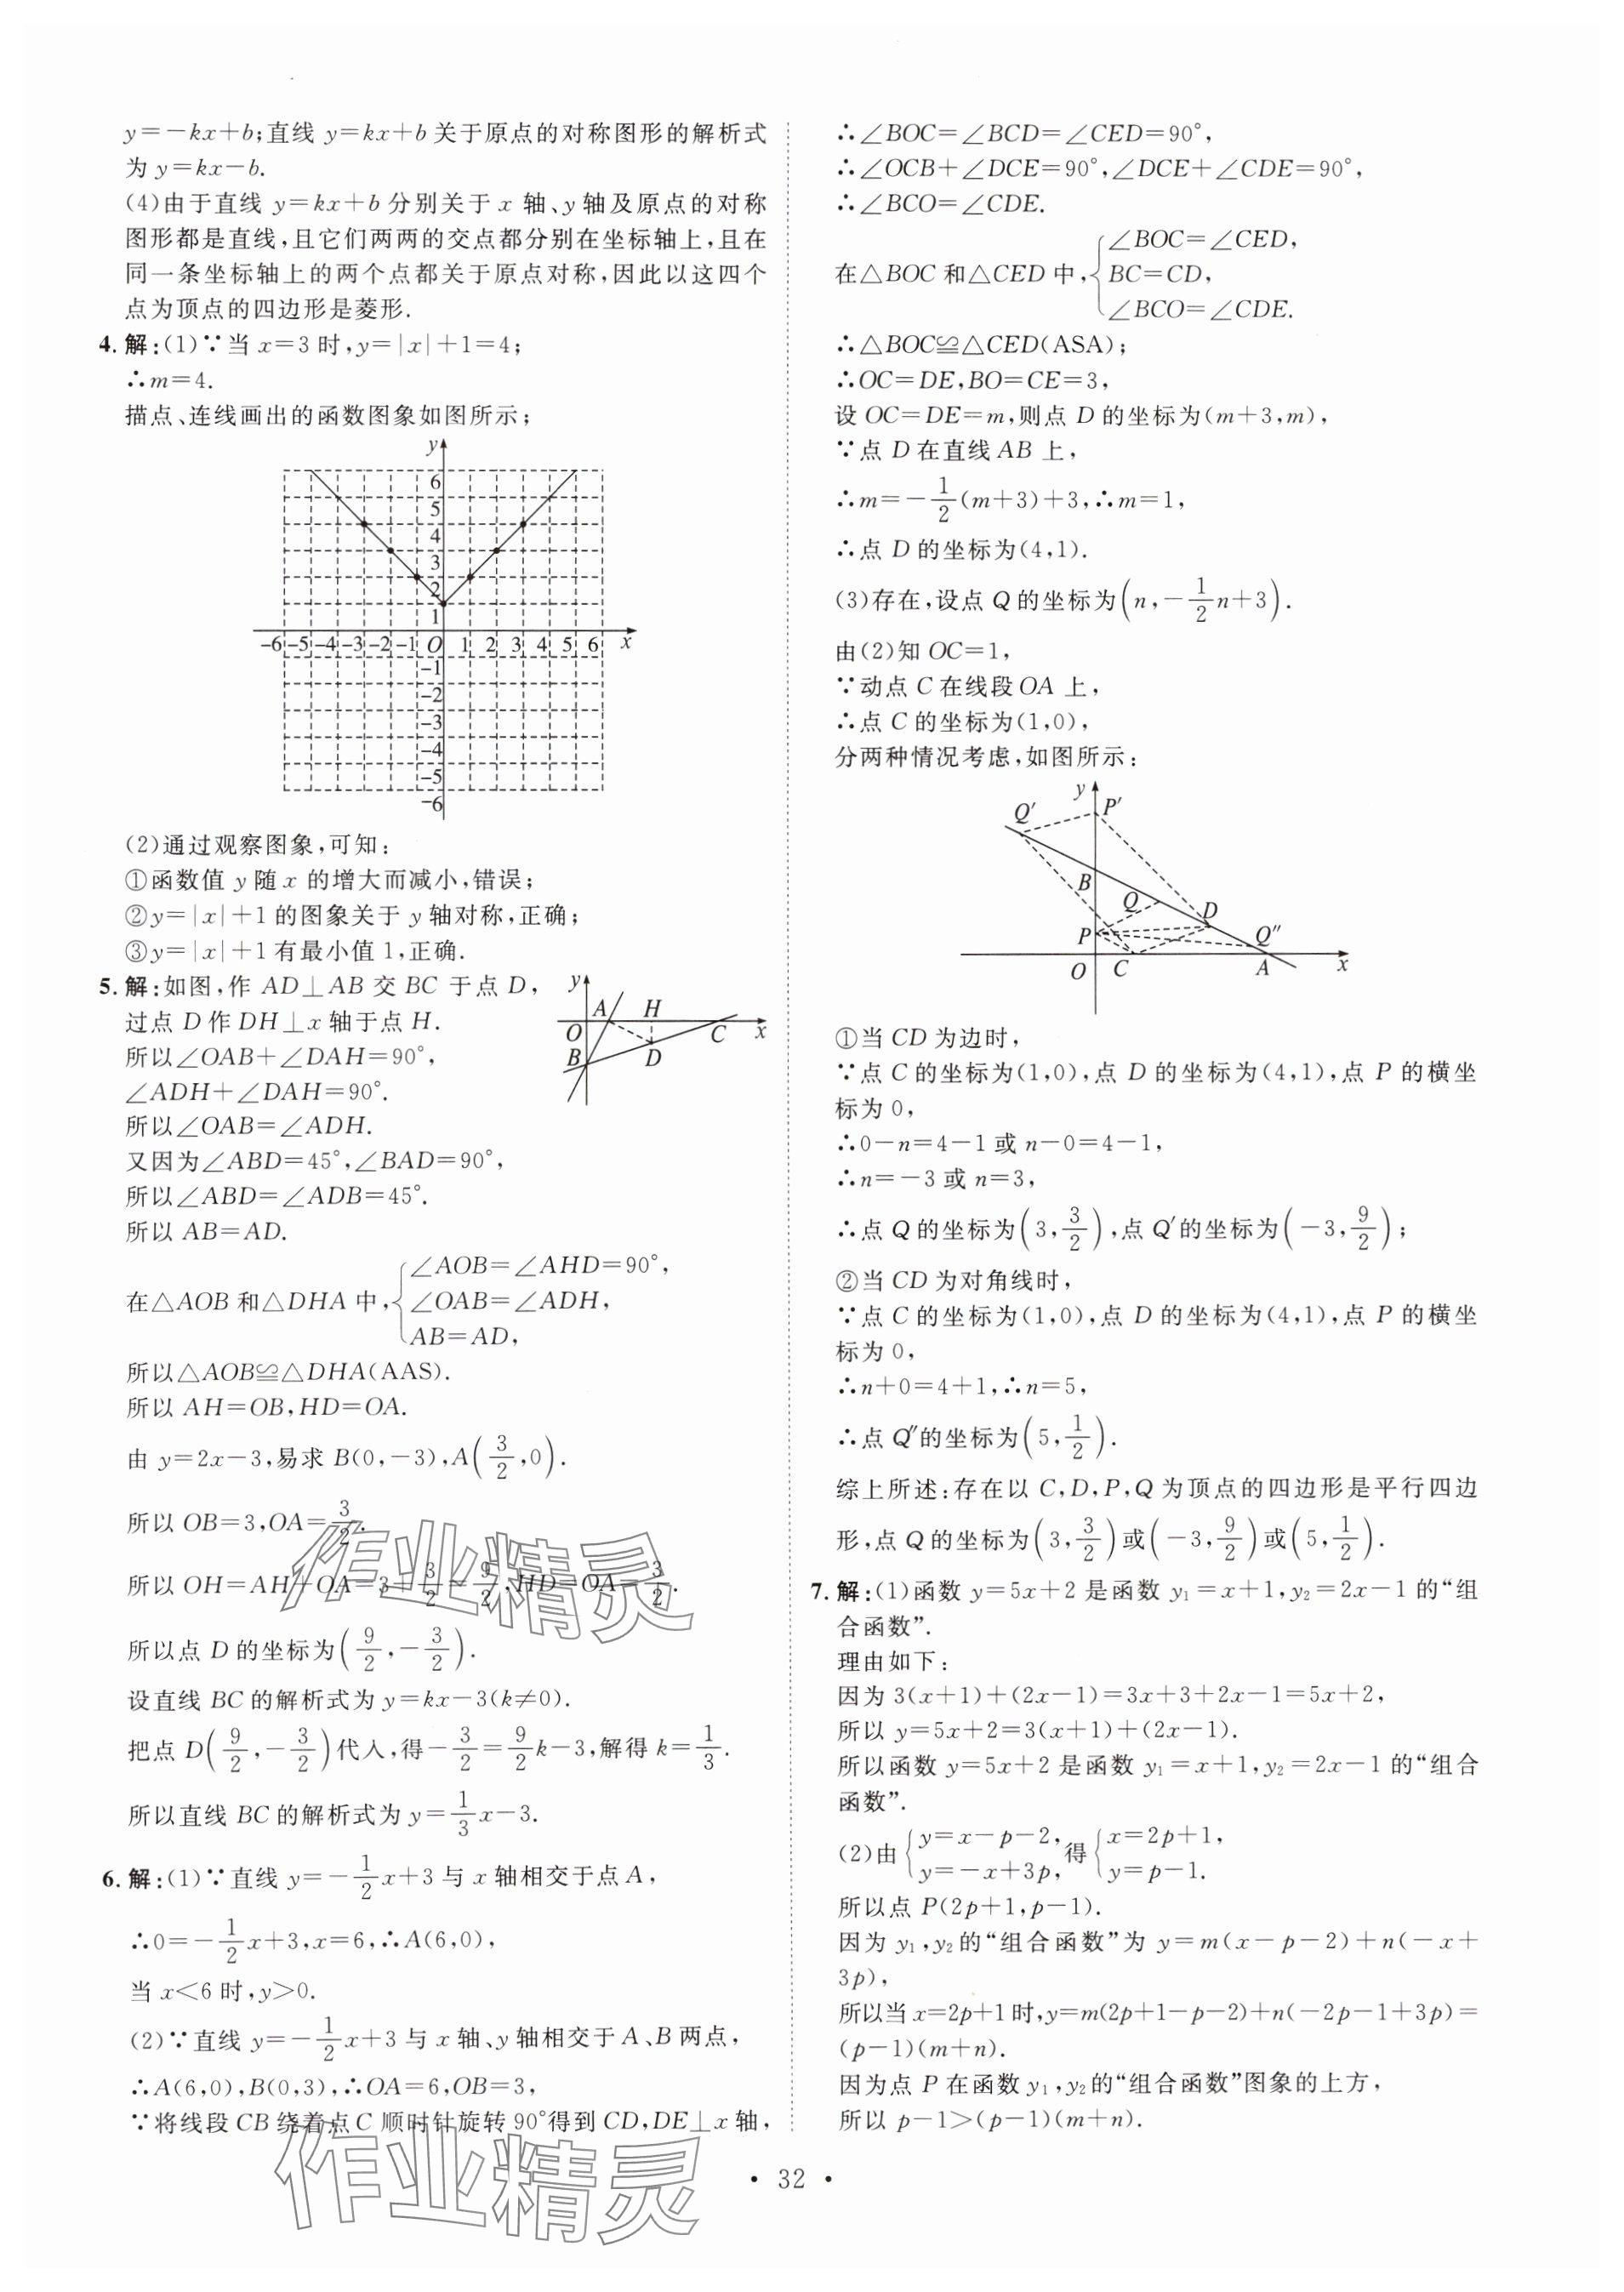 y=-kx+b;直线 y=kx+b 关于原点的对称图形的解析式
为 y=kx-b.
(4)由于直线 y=kx+b 分别关于 x 轴、y 轴及原点的对称
图形都是直线,且它们两两的交点都分别在坐标轴上,且在
同一条坐标轴上的两个点都关于原点对称,因此以这四个
点为顶点的四边形是菱形.
4. 解:(1)∵当 x=3 时,y=|x|+1=4;
∴m=4.
描点、连线画出的函数图象如图所示;
y
6
5
4
3
2
1
-6 -5 -4 -3 -2 -1 O 1 2 3 4 5 6 x
-1
-2
-3
-4
-5
-6
(2)通过观察图象,可知:
①函数值 y 随 x 的增大而减小,错误;
②y=|x|+1 的图象关于 y 轴对称,正确;
③y=|x|+1 有最小值 1,正确.
5. 解:如图,作 AD⊥AB 交 BC 于点 D,
过点 D 作 DH⊥x 轴于点 H.
y
A H
O C x
B D
所以∠OAB+∠DAH=90°,
∠ADH+∠DAH=90°.
所以∠OAB=∠ADH.
又因为∠ABD=45°,∠BAD=90°,
所以∠ABD=∠ADB=45°.
所以 AB=AD.
在△AOB 和△DHA 中,{∠AOB=∠AHD=90°,
∠OAB=∠ADH,
AB=AD,
所以△AOB≌△DHA(AAS).
所以 AH=OB,HD=OA.
由 y=2x-3,易求 B(0,-3),A(3/2,0).
所以 OB=3,OA=3/2.
所以 OH=AH+OA=3+3/2=9/2,HD=OA=3/2.
所以点 D 的坐标为(9/2,-3/2).
设直线 BC 的解析式为 y=kx-3(k≠0).
把点 D(9/2,-3/2)代入,得-3/2=9/2k-3,解得 k=1/3.
所以直线 BC 的解析式为 y=1/3x-3.
6. 解:(1)∵直线 y=-1/2x+3 与 x 轴相交于点 A,
∴0=-1/2x+3,x=6,∴A(6,0),
当 x<6 时,y>0.
(2)∵直线 y=-1/2x+3 与 x 轴、y 轴相交于 A、B 两点,
∴A(6,0),B(0,3),∴OA=6,OB=3,
∵将线段 CB 绕着点 C 顺时针旋转 90°得到 CD,DE⊥x 轴,
∴∠BOC=∠BCD=∠CED=90°,
∴∠OCB+∠DCE=90°,∠DCE+∠CDE=90°,
∴∠BCO=∠CDE.
在△BOC 和△CED 中,{∠BOC=∠CED,
BC=CD,
∠BCO=∠CDE.
∴△BOC≌△CED(ASA);
∴OC=DE,BO=CE=3,
设 OC=DE=m,则点 D 的坐标为(m+3,m),
∵点 D 在直线 AB 上,
∴m=-1/2(m+3)+3,∴m=1,
∴点 D 的坐标为(4,1).
(3)存在,设点 Q 的坐标为(n,-1/2n+3).
由(2)知 OC=1,
∵动点 C 在线段 OA 上,
∴点 C 的坐标为(1,0),
分两种情况考虑,如图所示:
y
Q′ P′
B
Q D
P Q″
O C A x
①当 CD 为边时,
∵点 C 的坐标为(1,0),点 D 的坐标为(4,1),点 P 的横坐
标为 0,
∴0-n=4-1 或 n-0=4-1,
∴n=-3 或 n=3,
∴点 Q 的坐标为(3,3/2),点 Q′的坐标为(-3,9/2);
②当 CD 为对角线时,
∵点 C 的坐标为(1,0),点 D 的坐标为(4,1),点 P 的横坐
标为 0,
∴n+0=4+1,∴n=5,
∴点 Q″的坐标为(5,1/2).
综上所述:存在以 C,D,P,Q 为顶点的四边形是平行四边
形,点 Q 的坐标为(3,3/2)或(-3,9/2)或(5,1/2).
7. 解:(1)函数 y=5x+2 是函数 y₁=x+1,y₂=2x-1 的“组
合函数”.
理由如下:
因为 3(x+1)+(2x-1)=3x+3+2x-1=5x+2,
所以 y=5x+2=3(x+1)+(2x-1).
所以函数 y=5x+2 是函数 y₁=x+1,y₂=2x-1 的“组合
函数”.
(2)由{y=x-p-2, y=-x+3p,得{x=2p+1, y=p-1.
所以点 P(2p+1,p-1).
因为 y₁,y₂的“组合函数”为 y=m(x-p-2)+n(-x+
3p),
所以当 x=2p+1 时,y=m(2p+1-p-2)+n(-2p-1+3p)=
(p-1)(m+n).
因为点 P 在函数 y₁,y₂的“组合函数”图象的上方,
所以 p-1>(p-1)(m+n).
· 32 ·
作业精灵
作业精灵